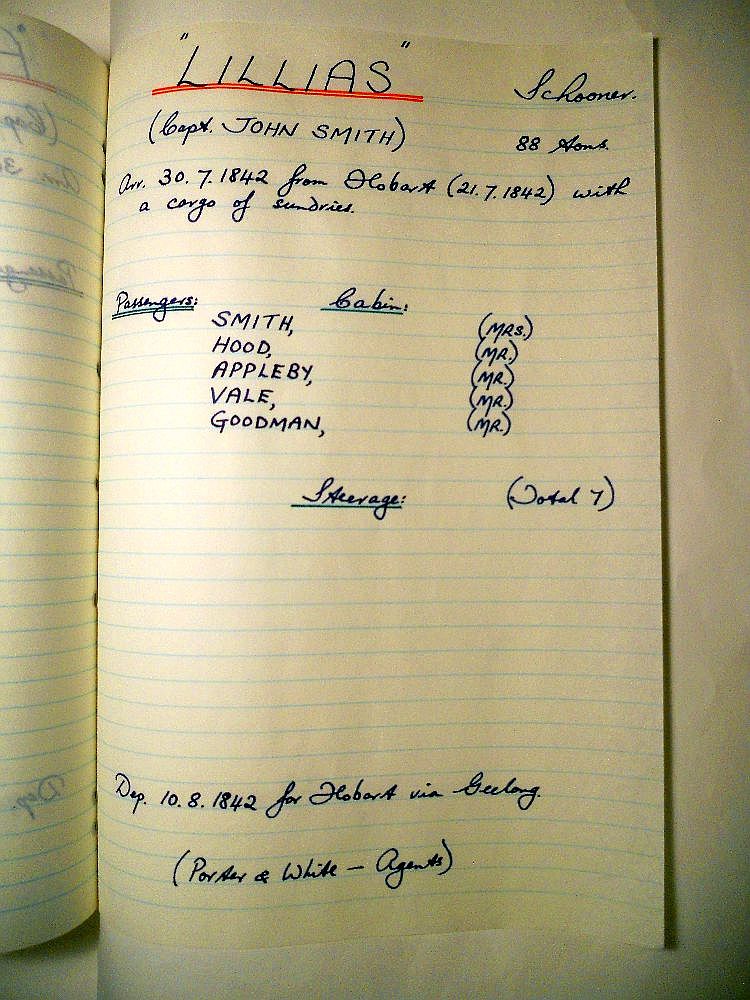 "LILLIAS" Schooner.
(Capt. JOHN SMITH) 88 tons.
Arr. 30.7.1842 from Hobart (21.7.1842) with
a cargo of sundries.
Passengers: Cabin:
SMITH, (MRS.)
HOOD, (MR.)
APPLEBY, (MR.)
VALE, (MR.)
GOODMAN, (MR.)
Steerage: (Total 7)
Dep. 10.8.1842 for Hobart via Geelong.
(Porter & White — Agents)